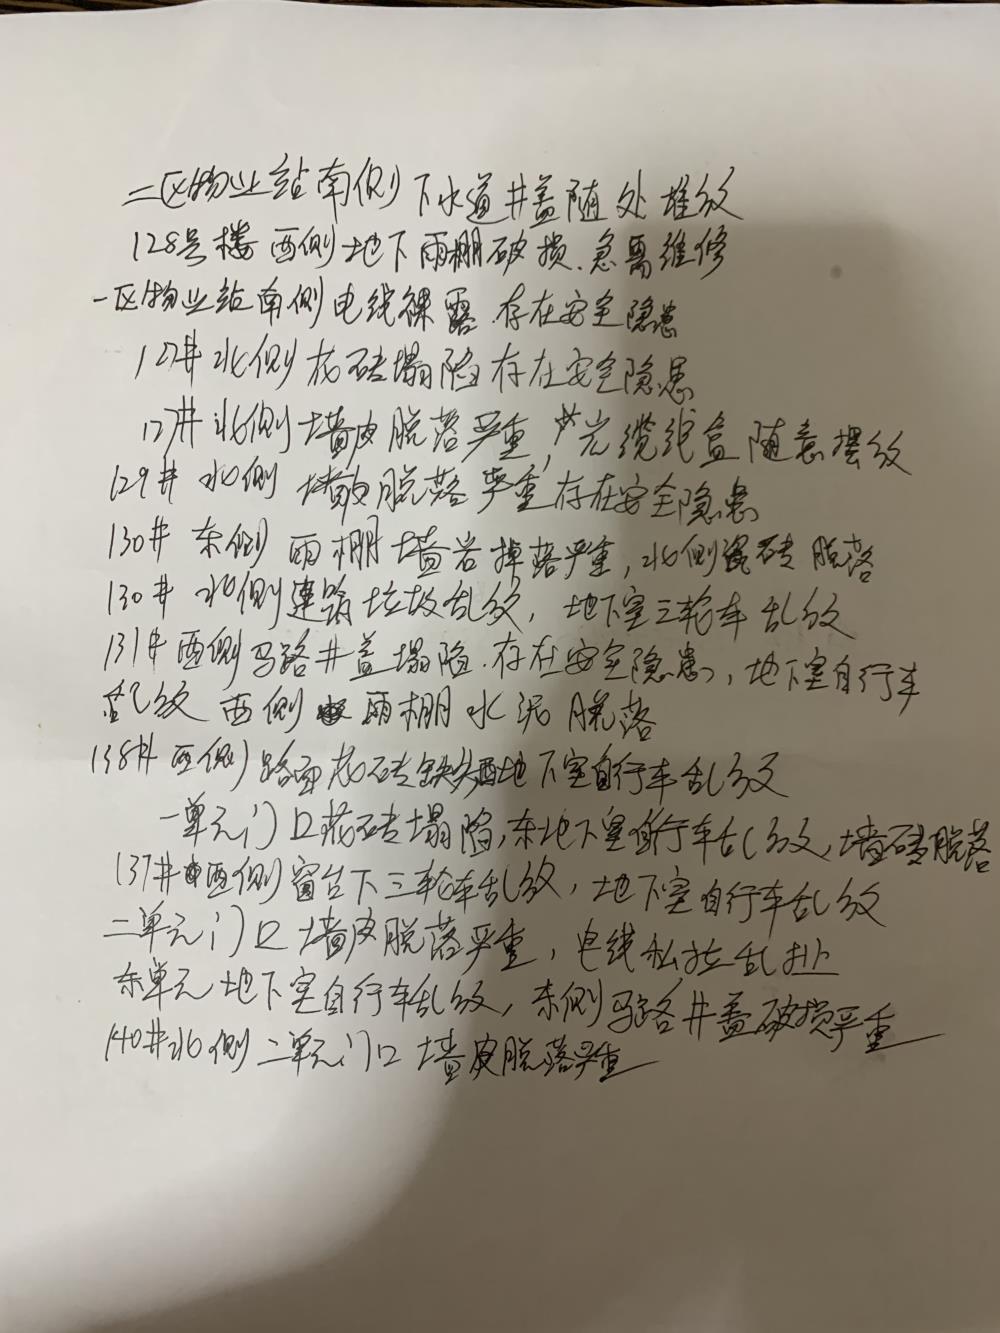 二区物业站南侧下水道井盖随处堆放
128号楼西侧地下雨棚破损.急需维修
一区物业站南侧电线裸露.存在安全隐患
127#北侧花砖塌陷存在安全隐患
127#北侧墙皮脱落严重,光缆线盒随意摆放
129#北侧墙皮脱落严重存在安全隐患
130#东侧雨棚墙岩掉落严重,北侧瓷砖脱落
130#北侧连路垃圾乱放,地下室三轮车乱放
131#西侧马路井盖塌陷.存在安全隐患,地下室自行车
乱放西侧雨棚水泥脱落
138#西侧路面花砖缺失西地下室自行车乱放
一单元门口花砖塌陷,东地下室自行车乱放,墙砖脱落
137#西侧窗台下三轮车乱放,地下室自行车乱放
二单元门口墙皮脱落严重,电线私拉乱扯
东单元地下室自行车乱放,东侧马路井盖破损严重
140#北侧二单元门口墙皮脱落严重